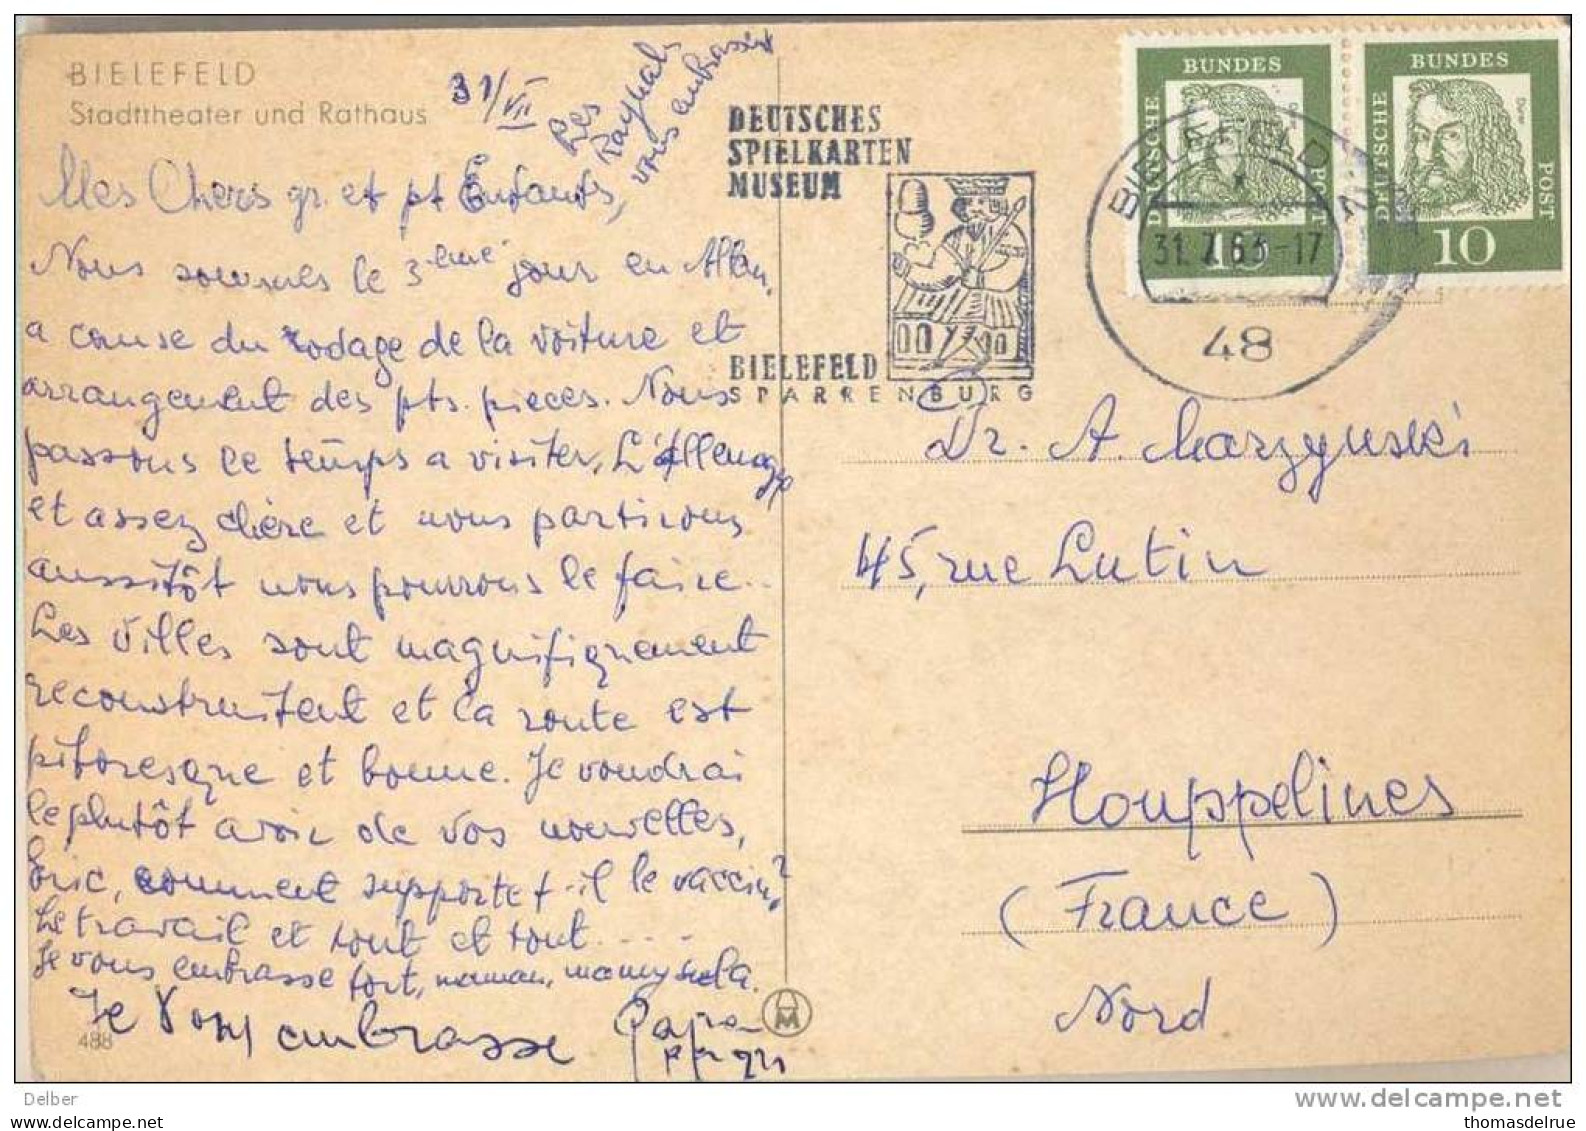 BIELEFELD
Stadttheater und Rathaus
31/VII
Les
Raynals
vous embrassent
Mes Chers gr. et pt Enfants,
Nous sommes le 3ème jour en Allem.
a cause du rodage de la voiture et
arrangement des pts. pieces. Nous
passons le temps a visiter, L'Allemagne
et assez chère et nous partirons
aussitôt nous pourrons le faire..
Les villes sont magnifiquement
reconstruitent et la route est
pitoresque et bonne. Je voudrai
le plutôt avoir de vos nouvelles,
Eric, comment supporte t-il le vaccin?
Le travail et tout et tout.....
Je vous embrasse fort, maman, mamy
Je vous embrasse Papa
488
DEUTSCHES
SPIELKARTEN
MUSEUM
BIELEFELD
SPARRENBURG
BIELEFELD
31.7.63-17
48
DEUTSCHE BUNDES POST
10
DEUTSCHE BUNDES POST
Dürer
10
Dr. A. Marzynski
45, rue Lutin
Houppelines
(France)
Nord
Delber
www.delcampe.net
thomasdelrue